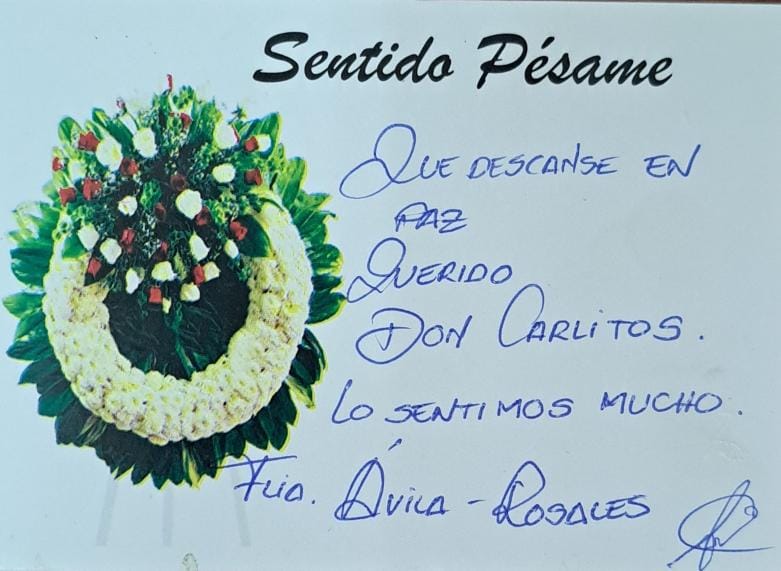 Sentido Pésame
QUE DESCANSE EN
PAZ
QUERIDO
DON CARLITOS.
LO SENTIMOS MUCHO.
FLIA. ÁVILA - ROSALES